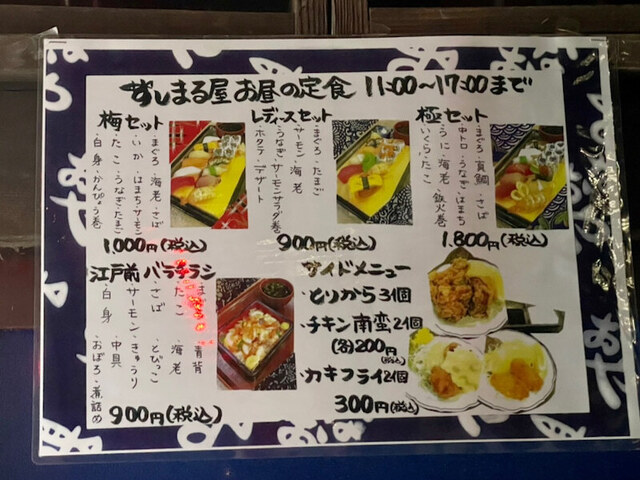 すしまる屋 お昼の定食 11:00〜17:00まで
梅セット
・まぐろ ・海老 ・さば
・いか ・はまち ・サーモン
・たこ ・うなぎ ・たまご
・白身 ・かんぴょう巻
1000円(税込)
レディースセット
・まぐろ ・たまご
・サーモン ・海老
・うなぎ ・サーモンサラダ巻
・ホタテ ・デザート
900円(税込)
極セット
・まぐろ ・真鯛 ・さば
・中トロ ・うなぎ ・はまち
・うに ・海老 ・鉄火巻
・いくら ・たこ
1.800円(税込)
江戸前 バラチラシ
・青背
・たこ ・海老
・さば ・とびっこ
・サーモン ・きゅうり
・白身 ・中具
・おぼろ ・煮詰め
900円(税込)
サイドメニュー
・とりから3個
・チキン南蛮2個
(各)200円(税込)
・カキフライ2個
300円(税込)